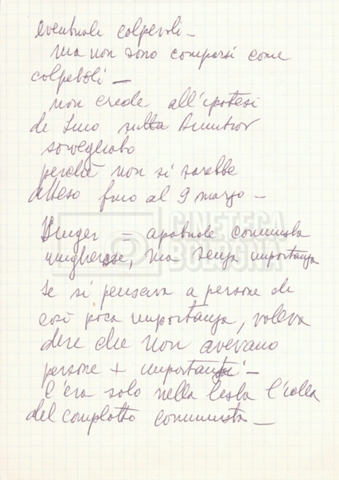 eventuale colpevoli –
ma non sono comparsi come
colpevoli –
non crede all'ipotesi
de Luno Dimitrov
sorvegliato
perché non si sarebbe
atteso fino al 9 marzo –
CINETECA
BOLOGNA
– apostolo comunista
ungherese, ma senza importanza
se si pensava a persone di
così poca importanza, voleva
dire che non avevano
persone + importanti –
C'era solo nella testa l'idea
del complotto comunista –